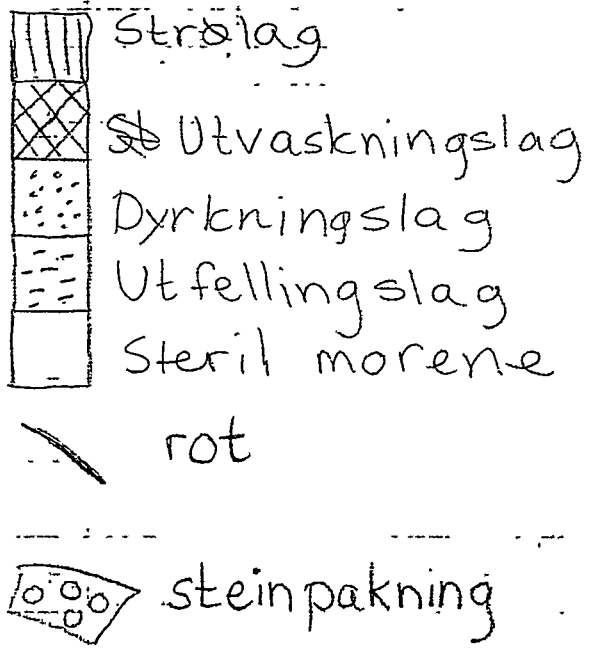 Strølag
Utvaskningslag
Dyrkningslag
Utfellingslag
Steril morene
rot
steinpakning